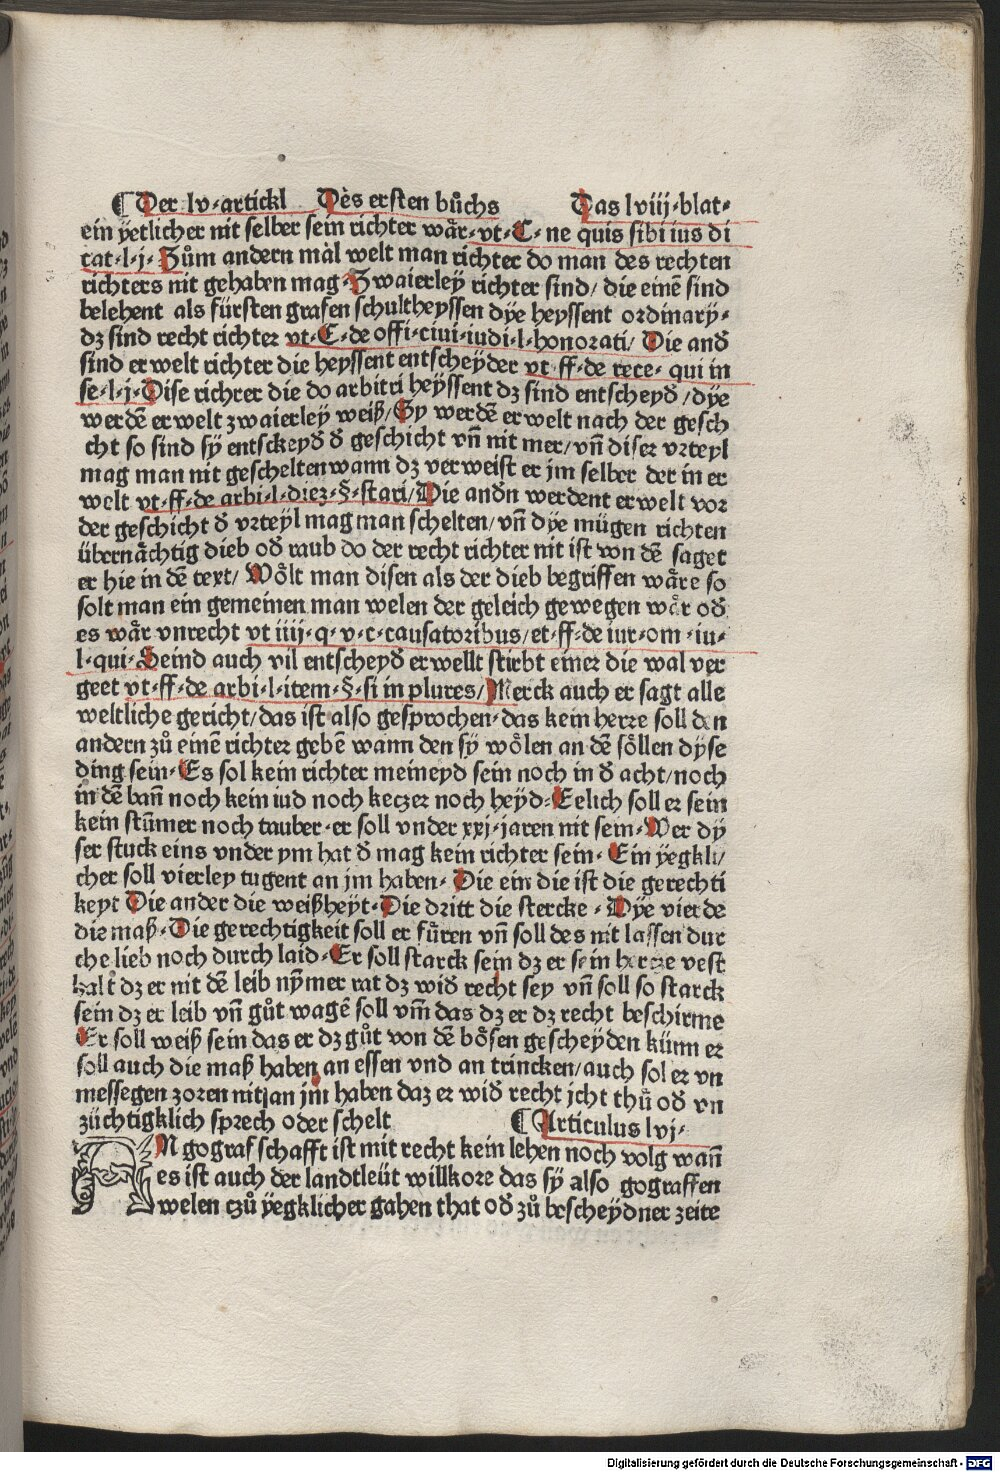 ¶ Der ·lv·artickl Dès ersten bůchs Das lviij·blat·
ein ÿetlicher nit selber sein richter wår·vt·C·ne quis sibi ius di
cat·l·j·Zům andern màl welt man richter do man des rechten
richters nit gehaben mag·Zwaierleÿ richter sind/ die einē sind
belehent als fürsten grafen schultheyssen dÿe heyssent ordinarÿ·
dz sind recht richter vt·C·de offi·ciui·iudi·l·honorati/ Die and̄
sind er welt richter die heyssent entscheÿder vt·ff·de rece·qui in
se·l·j·Dise richrer die do arbitri heÿssent dz sind entscheyd̄ /dÿe
werdē er welt zwaierleÿ weiß/Sy werdē er welt nach der gesch
cht so sind sÿ entsckeyd̄ d̄ geschicht vn̄ nit mer/vn̄ diser vrteyl
mag man nit geschelten wann dz verweist er jm selber der in er
welt vt·ff·de arbi·l·diez·§·stari/Die and̄n werdent er welt vor
der geschicht d̄ vrteÿl mag man schelten/vn̄ dÿe mügen richten
übernåchtig dieb od̄ raub do der recht richter nit ist von dē saget
er hie in dē text/ Wôlt man disen als der dieb begriffen wåre so
solt man ein gemeinen man welen der geleich gewegen wår od̄
es wår vnrecht vt iiij·q·v·c·causatoribus/et·ff·de iur·om·iu·
l·qui·Seind auch vil entscheyd̄ erwellt stirbt einer die wal ver
geet vt·ff·de arbi·l·item·§·si in plures/Merck auch er sagt alle
weltliche gericht/das ist also gesprochen·das kein herre soll den
andern zů einē richter gebē wann den sÿ wôlen an dē sôllen dÿse
ding sein·Es sol kein richter meineyd sein noch in d̄ acht/noch
in dē ban̄ noch kein iud noch keczer noch heyd·Eelich soll er sein
kein stūmer noch tauber·er soll vnder xxj·jaren nit sein·Wer dÿ
ser stuck eins vnder ym hat d̄ mag kein richter sein·Ein ÿegkli/
cher soll vierley tugent an jm haben·Die ein die ist die gerechti
keyt Die ander die weißheÿt·Die dritt die stercke·Dÿe vierde
die maß·Die gerechtigkeit soll er füren vn̄ soll des nit lassen dur
che lieb noch durch laid·Er soll starck sein dz er sein hercze vest
halt dz er nit dē leib nÿmer rat dz wid̄ recht sey vn̄ soll so starck
sein dz er leib vn̄ gůt wagē soll vm̄ das dz er dz recht beschirme
Er soll weiß sein das er dz gůt von dē bôsen gescheÿden künn er
soll auch die maß haben an essen vnd an trincken/auch sol er vn
messegen zoren nit an jm haben daz er wid̄ recht jcht thů od̄ vn
züchtigklich sprech oder schelt ¶ Articulus lvj·
AN gograf schafft ist mit recht kein lehen noch volg wan̄
es ist auch der landtleüt willkore das sÿ also gograffen
welen czů ÿegklicher gahen that od̄ zů bescheÿdner zeite
Digitalisierung gefördert durch die Deutsche Forschungsgemeinschaft · DFG